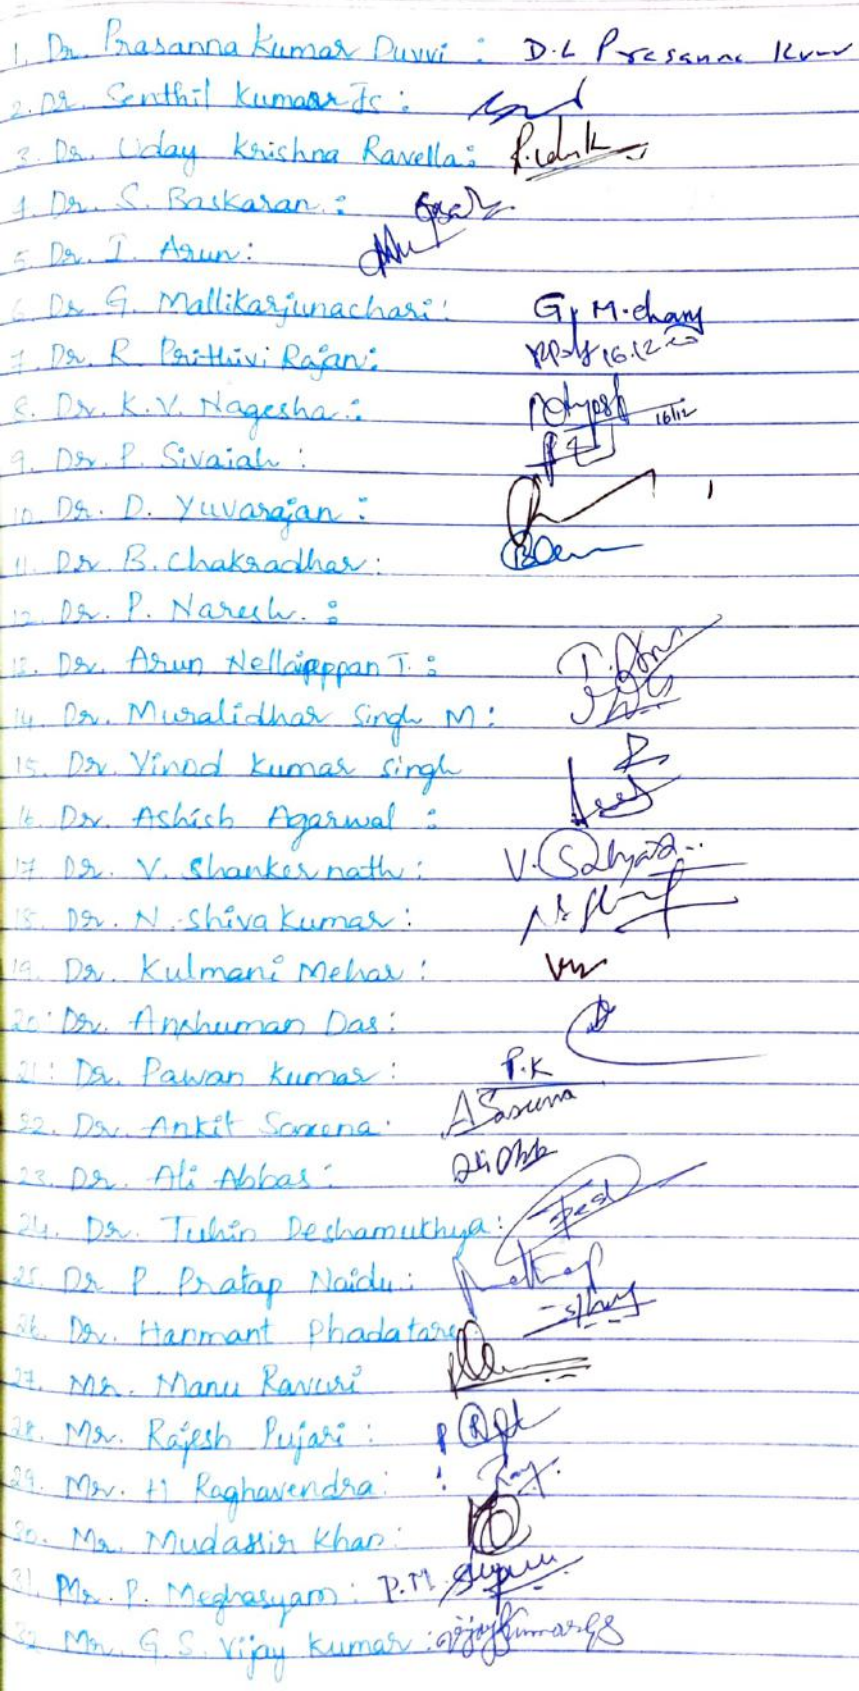 1. Dr. Prasanna Kumar Duvvi : D.L Prasanna Kumar
2. Dr. Senthil Kumaar Js :
3. Dr. Uday Krishna Ravella :
4. Dr. S. Baskaran :
5. Dr. I. Arun :
6. Dr G. Mallikarjunachari : G, M.chary
7. Dr. R Prithivi Rajan : 16.12
8. Dr. K.V. Nagesha : 16/12
9. Dr. P. Sivaiah :
10. Dr. D. Yuvarajan :
11. Dr. B. Chakradhar :
12. Dr. P. Naresh. :
13. Dr. Arun Nellaiappan T. :
14. Dr. Muralidhar Singh M :
15. Dr. Vinod Kumar Singh
16. Dr. Ashish Agarwal :
17. Dr. V. Shanker nath : V.
18. Dr. N. Shiva Kumar :
19. Dr. Kulmani Mehar :
20. Dr. Anshuman Das :
21. Dr. Pawan Kumar : P.K
22. Dr. Ankit Saxena : ASaxena
23. Dr. Ali Abbas :
24. Dr. Tuhin Deshamukhya :
25. Dr P. Pratap Naidu :
26. Dr. Hanmant Phadatare
27. Mr. Manu Ravuri
28. Mr. Rajesh Pujari :
29. Mr. H Raghavendra :
30. Mr. Mudassir Khan :
31. Mr. P. Meghasyam : P.M.
32. Mr. G.S. Vijay Kumar : vijaykumarGS